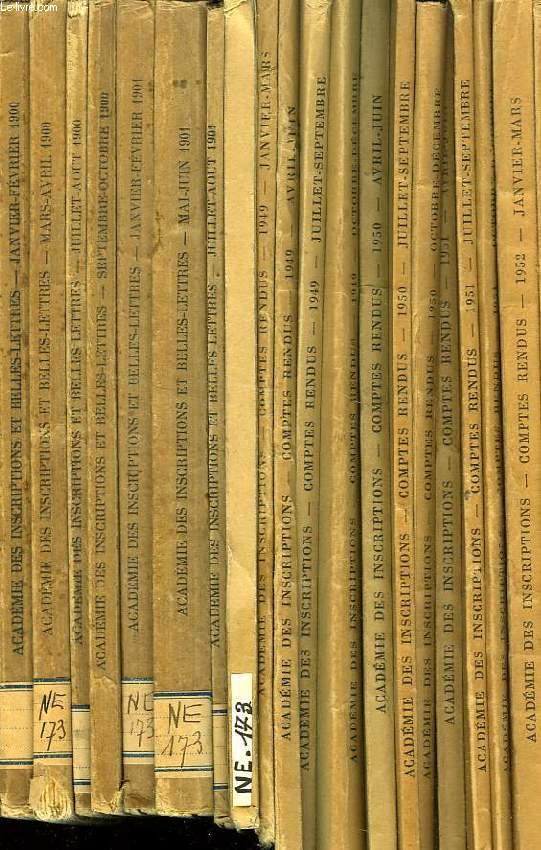 Le-livre.com
ACADÉMIE DES INSCRIPTIONS ET BELLES-LETTRES — JANVIER-FÉVRIER 1900
ACADÉMIE DES INSCRIPTIONS ET BELLES-LETTRES — MARS-AVRIL 1900
NE
173
ACADÉMIE DES INSCRIPTIONS ET BELLES LETTRES — JUILLET-AOUT 1900
ACADÉMIE DES INSCRIPTIONS ET BELLES-LETTRES — SEPTEMBRE-OCTOBRE 1900
ACADÉMIE DES INSCRIPTIONS ET BELLES-LETTRES — JANVIER-FÉVRIER 1901
NE
173
ACADÉMIE DES INSCRIPTIONS ET BELLES-LETTRES — MAI-JUIN 1901
NE
173
ACADÉMIE DES INSCRIPTIONS ET BELLES LETTRES — JUILLET-AOUT 1901
NE.173
ACADÉMIE DES INSCRIPTIONS — COMPTES RENDUS — 1949 — JANVIER-MARS
ACADÉMIE DES INSCRIPTIONS — COMPTES RENDUS — 1949 — AVRIL-JUIN
ACADÉMIE DES INSCRIPTIONS — COMPTES RENDUS — 1949 — JUILLET-SEPTEMBRE
ACADÉMIE DES INSCRIPTIONS — COMPTES RENDUS — 1949 — OCTOBRE-DÉCEMBRE
ACADÉMIE DES INSCRIPTIONS — COMPTES RENDUS — 1950 — AVRIL-JUIN
ACADÉMIE DES INSCRIPTIONS — COMPTES RENDUS — 1950 — JUILLET-SEPTEMBRE
ACADÉMIE DES INSCRIPTIONS — COMPTES RENDUS — 1950 — OCTOBRE-DÉCEMBRE
ACADÉMIE DES INSCRIPTIONS — COMPTES RENDUS — 1951 — AVRIL-JUIN
ACADÉMIE DES INSCRIPTIONS — COMPTES RENDUS — 1951 — JUILLET-SEPTEMBRE
ACADÉMIE DES INSCRIPTIONS — COMPTES RENDUS
ACADÉMIE DES INSCRIPTIONS — COMPTES RENDUS — 1952 — JANVIER-MARS